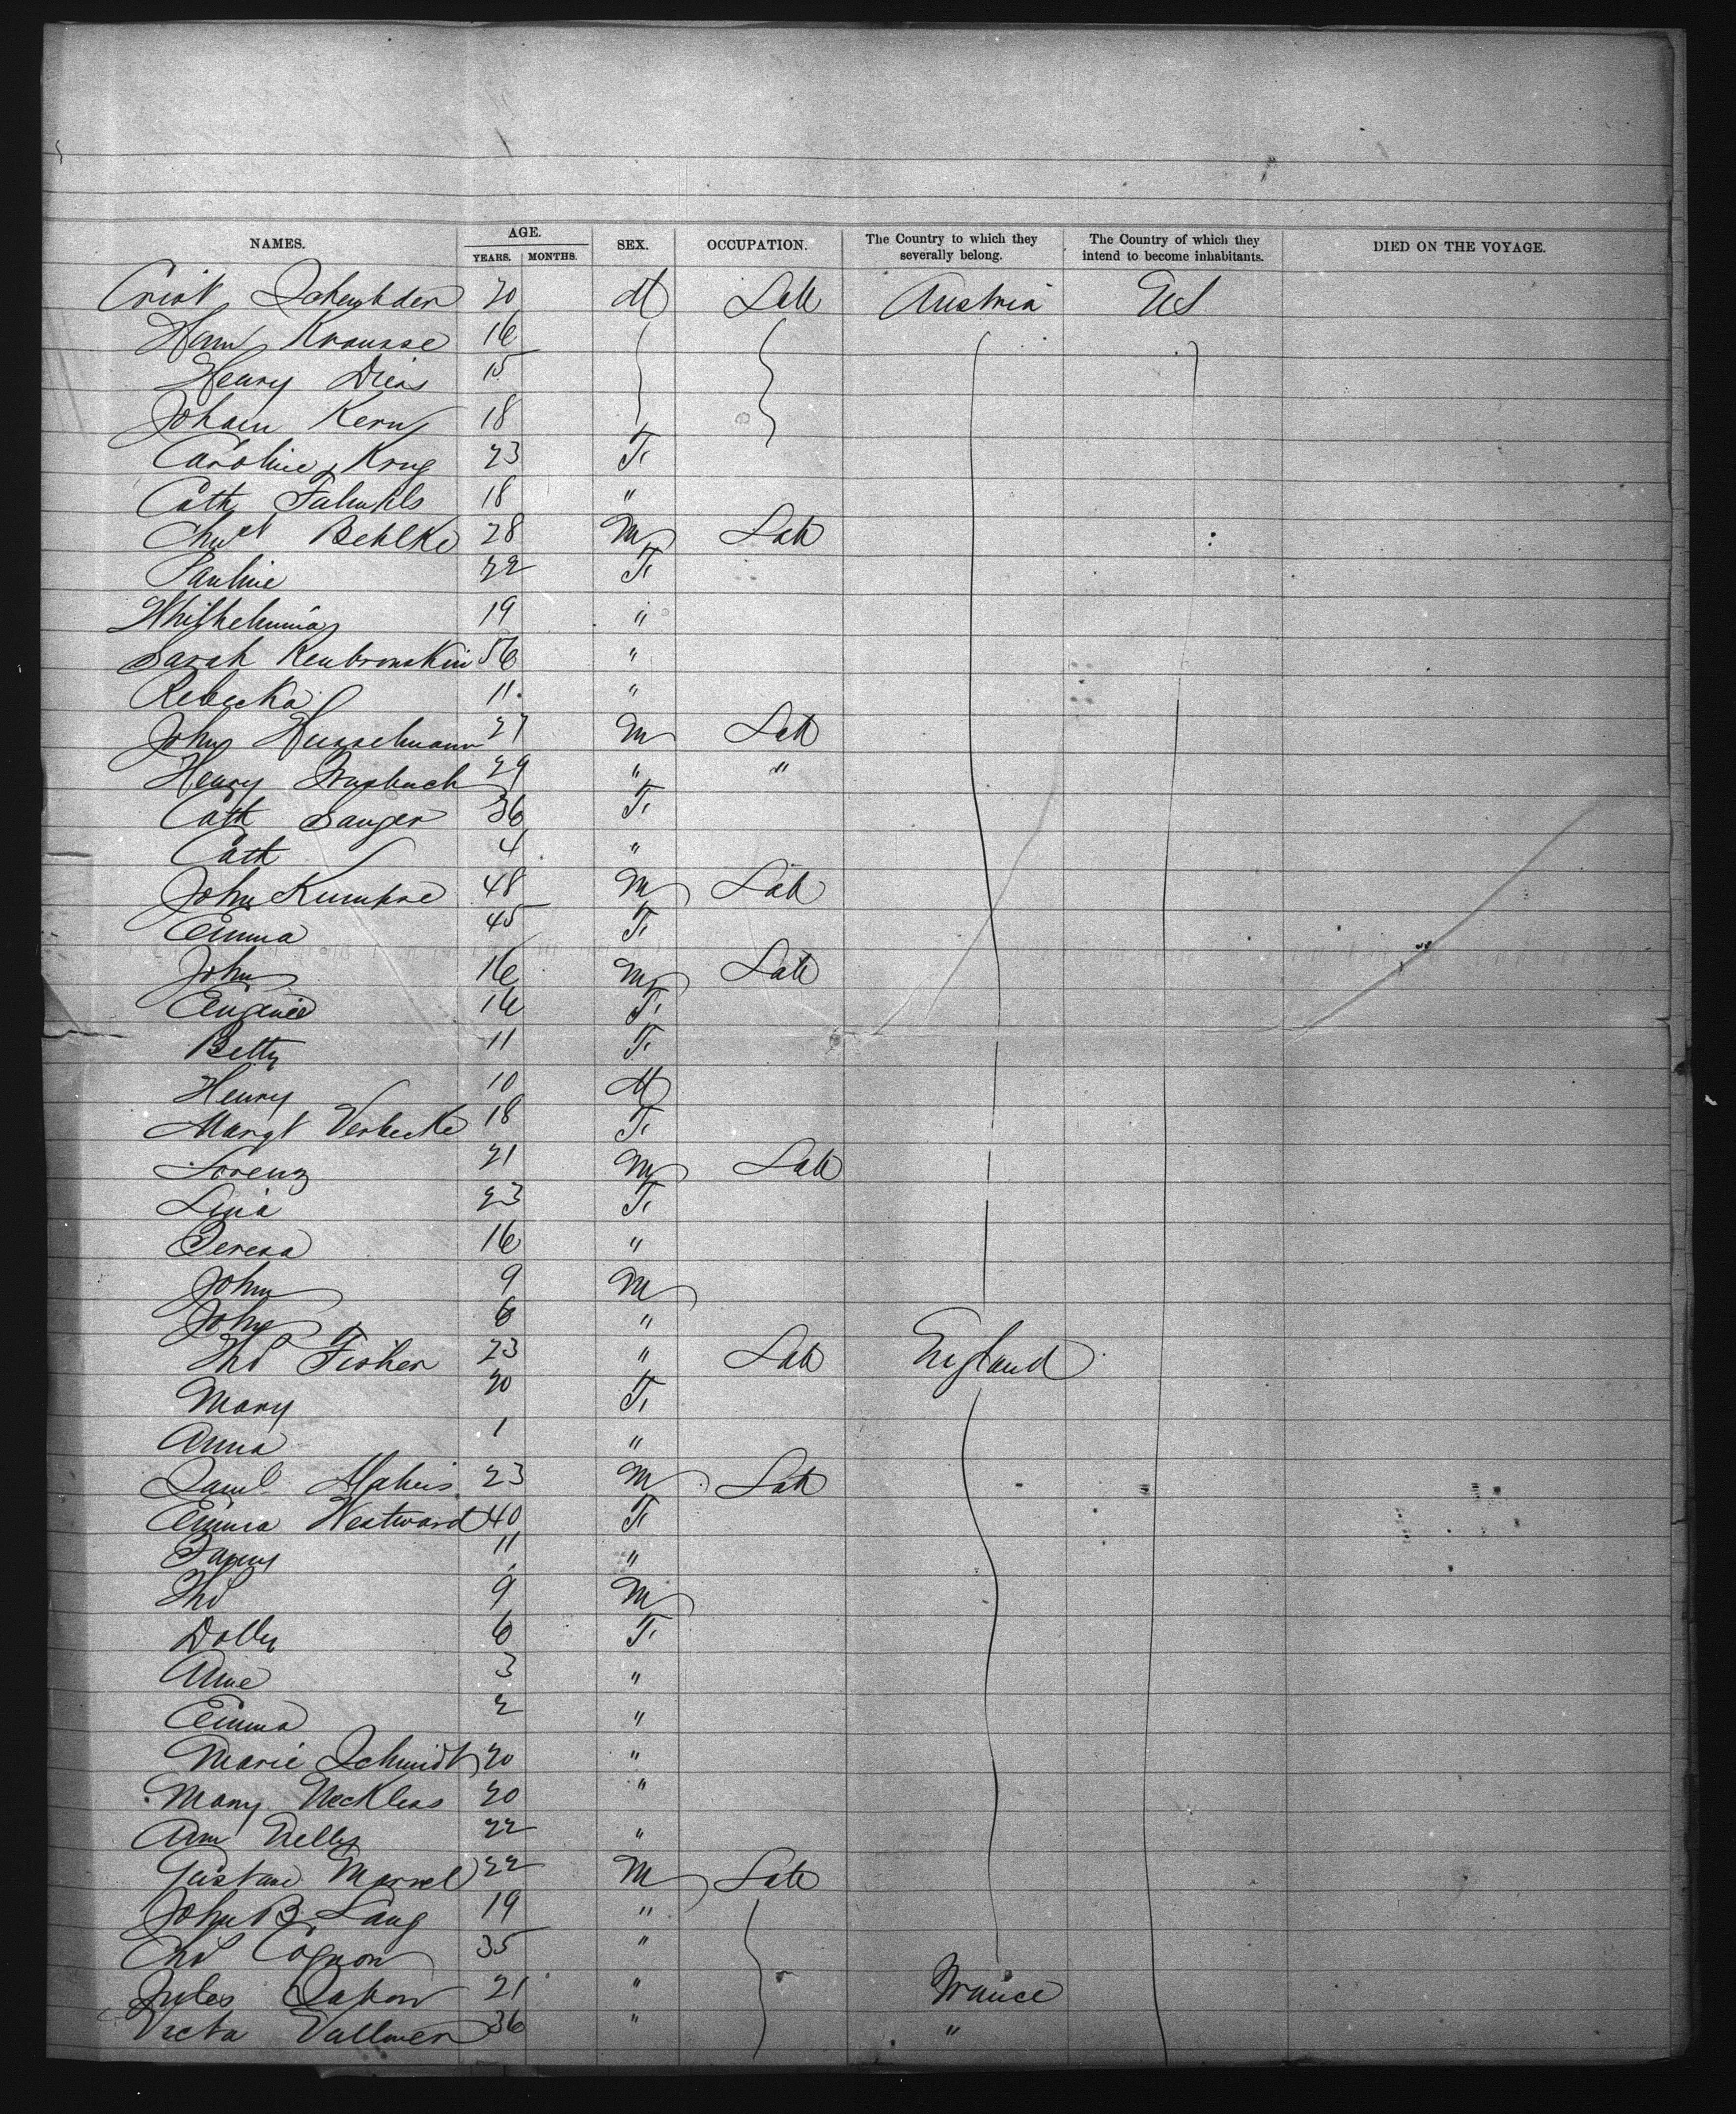 NAMES. AGE. SEX. OCCUPATION. The Country to which they severally belong. The Country of which they intend to become inhabitants. DIED ON THE VOYAGE.
YEARS. MONTHS.
20 M Lab Austria US
Krausse 16
Henry 15
Johann Kern 18
Caroline Krug 23 F
Cath 18 "
Behlke 28 M Lab
Pauline 22 F
19 "
Sarah 56 "
Rebecka 11 "
John Husselmann 27 M Lab
Henry 29 " "
Cath Sanger 36 F
Cath 4 "
John 48 M Lab
Emma 45 F
John 16 M Lab
Eugenie 16 F
Betty 11 F
Henry 10 M
Margt Verbecke 18 F
Lorenz 21 M Lab
Lina 23 F
Teresa 16 "
John 9 M
John 6 "
Tho Fisher 23 " Lab England
Mary 20 F
Anna 1 "
23 M Lab
Emma Westward 40 F
Fanny 11 "
Tho 9 M
Dolly 6 F
Anne 3 "
Emma 2 "
Marie Schmidt 20 "
Mary Neckless 20 "
Ann Nelly 22 "
Gustave 22 M Lab
John B. Lang 19 "
35 "
Jules 21 " France
Victor Vallmer 36 " "